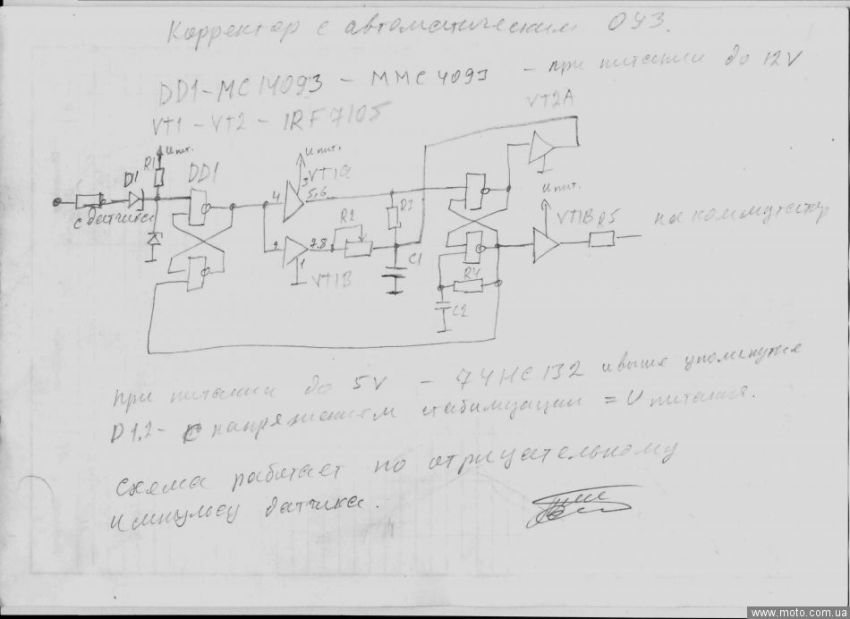 Корректор с автоматическим ОУЗ.
DD1-MC14093 - MMC4093 - при питании до 12V
VT1 - VT2 - IRF7105
VT2A
Uпит.
R1
D1
DD1
Uпит.
VT1a
4
3
5,6
с датчика
R2
R3
2
7,8
1
VT1B
C1
Uпит.
VT1B
R5
на коммутатор
R4
C2
при питании до 5V - 74HC132 и выше упомянутые
D1,2- с напряжением стабилизации = U питания.
Схема работает по отрицательному
импульсу датчика.
www.moto.com.ua